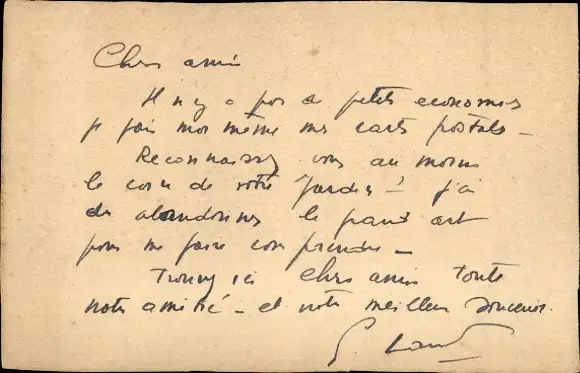 Chers amis
Il n'y a pas de petites economies
je fais moi même mes cartes postales –
Reconnaissez vous au moins
le coin de votre Jardin! j'ai
du abandonner le grand art
pour me faire comprendre –
Trouvez ici Chers amis toute
notre amitié – et notre meilleur souvenir.